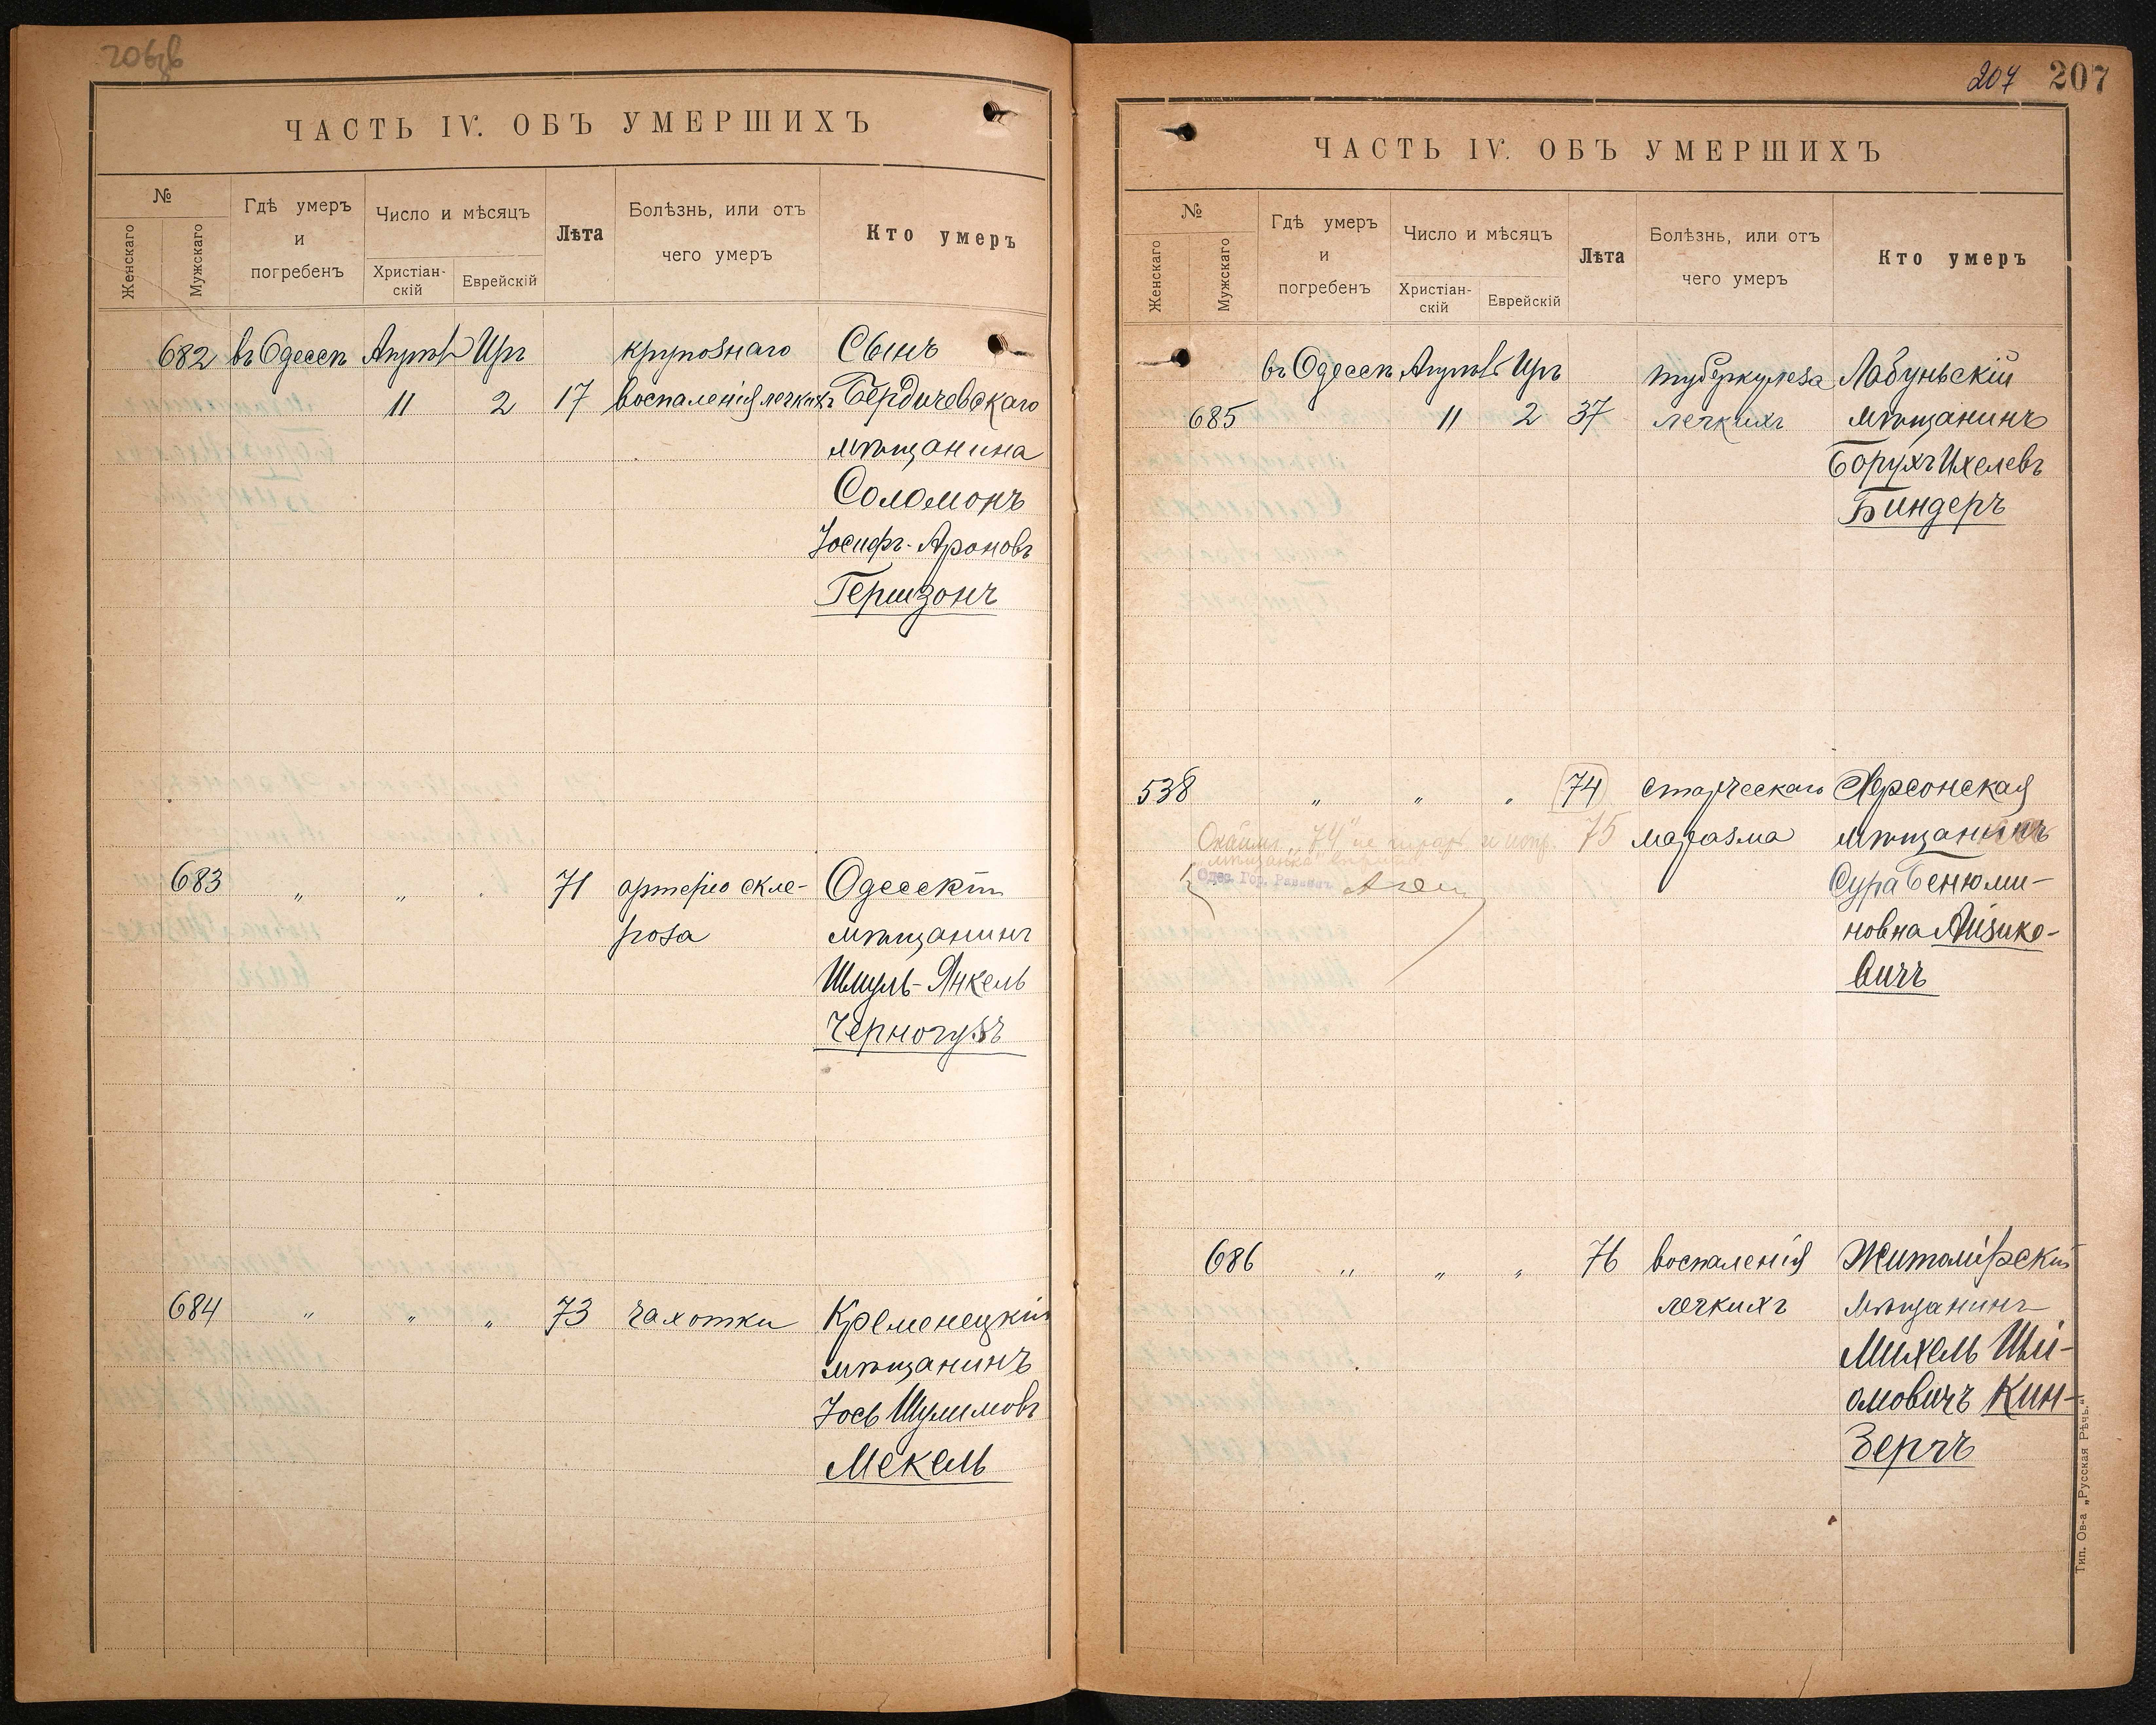 206об
ЧАСТЬ IV. ОБЪ УМЕРШИХЪ
№
Женскаго
Мужскаго
Гдѣ умеръ
и
погребенъ
Число и мѣсяцъ
Христіан-
скій
Еврейскій
Лѣта
Болѣзнь, или отъ
чего умеръ
Кто умеръ
682 въ Одессѣ Апрѣль Ира крупознаго Сынъ
11 2 17 воспаленія легкихъ Бердичевскаго
мѣщанина
Соломонъ
Іосифъ-Ароновъ
Гершзонъ
683 " " " 71 артеріо скле- Одесскій
роза мѣщанинъ
Шмуль-Янкель
Черногузъ
684 " " " 73 чахотки Кременецкій
мѣщанинъ
Іось Шулимовъ
Мекель
207 207
ЧАСТЬ IV. ОБЪ УМЕРШИХЪ
№
Женскаго
Мужскаго
Гдѣ умеръ
и
погребенъ
Число и мѣсяцъ
Христіан-
скій
Еврейскій
Лѣта
Болѣзнь, или отъ
чего умеръ
Кто умеръ
въ Одессѣ Апрѣль Ира туберкулеза Лабуньскій
685 11 2 37 легкихъ мѣщанинъ
Борухъ Ихелевъ
Биндеръ
538 " " " 74 старческаго Херсонская
"74" не 75 маразма мѣщанинъ
"мѣщанка"
Одес. Гор. Раввинъ
Сура Бенюми-
новна Айзико-
вичъ
686 " " " 76 воспаленія Житомірскій
легкихъ мѣщанинъ
Михель Шлі-
омовичъ Кин-
зерчъ
Тип. Ов-а „Русская Рѣчь."